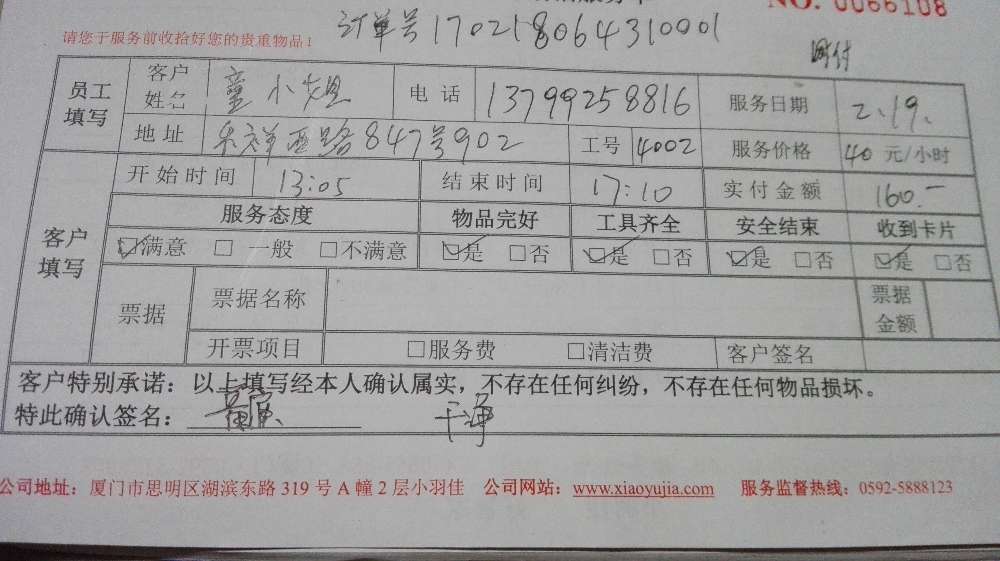 NO. 0066108
订单号 170218064310001
请您于服务前收拾好您的贵重物品!
网付
员工填写 客户姓名 童小姐 电话 13799258816 服务日期 2.19.
地址 乐祥西路847号902 工号 4002 服务价格 40 元/小时
客户填写 开始时间 13:05 结束时间 17:10 实付金额 160.-
服务态度 物品完好 工具齐全 安全结束 收到卡片
☑满意 □ 一般 □不满意 ☑是 □否 ☑是 □否 ☑是 □否 ☑是 □否
票据 票据名称 票据金额
开票项目 □服务费 □清洁费 客户签名
客户特别承诺：以上填写经本人确认属实，不存在任何纠纷，不存在任何物品损坏。
特此确认签名： 干净
公司地址：厦门市思明区湖滨东路 319 号 A 幢 2 层小羽佳 公司网站：www.xiaoyujia.com 服务监督热线：0592-5888123